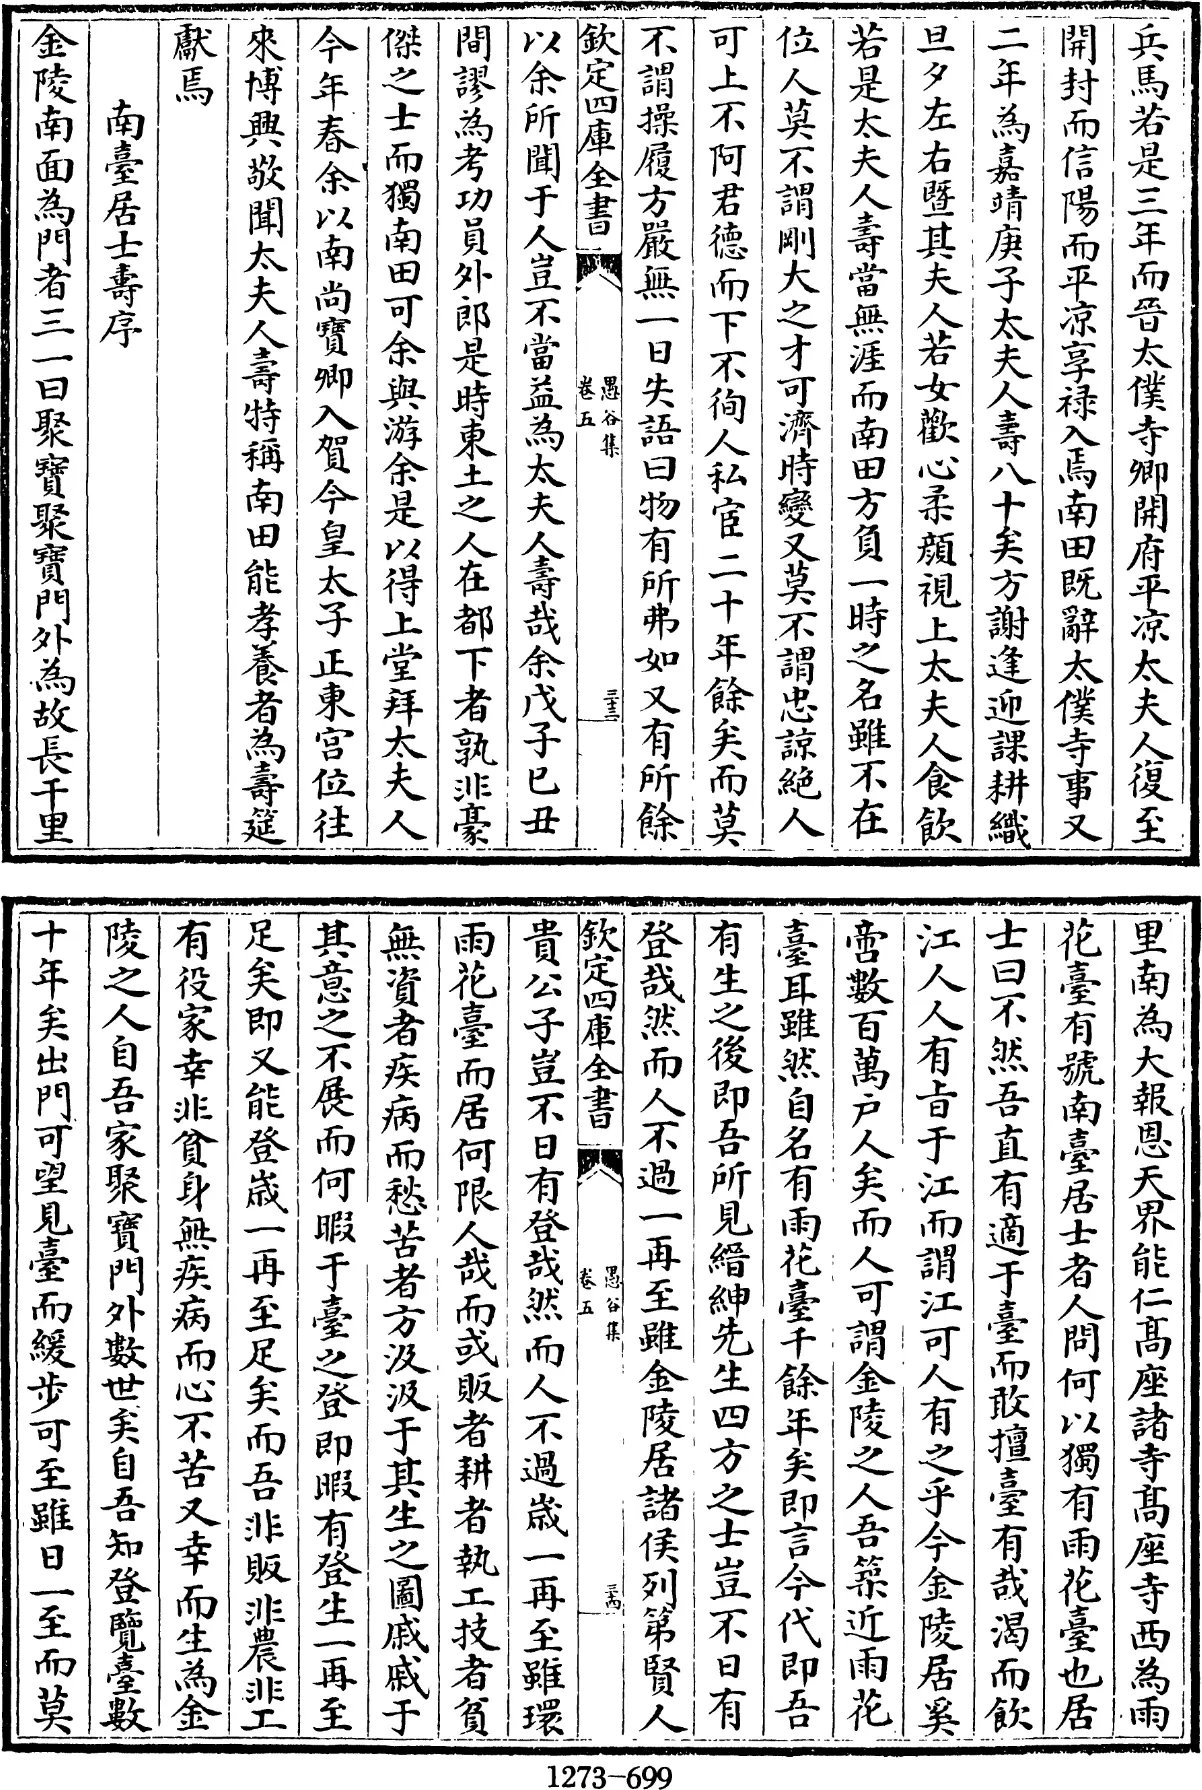 兵馬若是三年而晉太僕寺卿開府平凉太夫人復至
開封而信陽而平凉享禄入焉南田既辭太僕寺事又
二年為嘉靖庚子太夫人壽八十矣方謝逢迎課耕織
旦夕左右暨其夫人若女歡心柔顔視上太夫人食飲
若是太夫人壽當無涯而南田方負一時之名雖不在
位人莫不謂剛大之才可濟時變又莫不謂忠諒絶人
可上不阿君德而下不徇人私宦二十年餘矣而莫
不謂操履方嚴無一日失語曰物有所弗如又有所餘
欽定四庫全書
愚谷集
卷五
三十三
以余所聞于人豈不當益為太夫人壽哉余戊子已丑
間謬為考功員外郎是時東土之人在都下者孰非豪
傑之士而獨南田可余與游余是以得上堂拜太夫人
今年春余以南尚寶卿入賀今皇太子正東宫位往
來博興敬聞太夫人壽特稱南田能孝養者為壽筵
獻焉
南臺居士壽序
金陵南面為門者三一曰聚寶聚寶門外為故長干里
里南為大報恩天界能仁髙座諸寺髙座寺西為雨
花臺有號南臺居士者人問何以獨有雨花臺也居
士曰不然吾直有適于臺而敢擅臺有哉渴而飲
江人人有㫖于江而謂江可人有之乎今金陵居奚
啻數百萬户人矣而人可謂金陵之人吾築近雨花
臺耳雖然自名有雨花臺千餘年矣即言今代即吾
有生之後即吾所見縉紳先生四方之士豈不日有
登哉然而人不過一再至雖金陵居諸侯列第賢人
欽定四庫全書
愚谷集
卷五
三十四
貴公子豈不日有登哉然而人不過歳一再至雖環
雨花臺而居何限人哉而或販者耕者執工技者貧
無資者疾病而愁苦者方汲汲于其生之圖戚戚于
其意之不展而何暇于臺之登即暇有登生一再至
足矣即又能登歳一再至足矣而吾非販非農非工
有役家幸非貧身無疾病而心不苦又幸而生為金
陵之人自吾家聚寶門外數世矣自吾知登覽臺數
十年矣出門可望見臺而緩步可至雖日一至而莫
1273-699